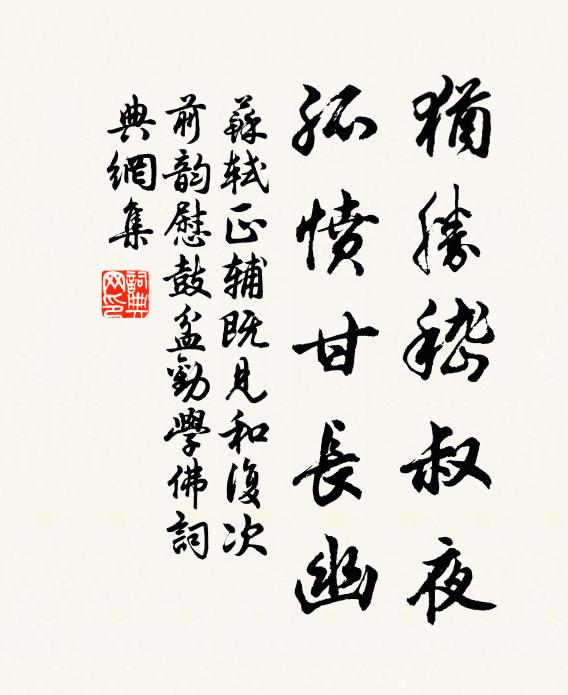 猶勝嵇叔夜
孤憤甘長幽
蘇軾正輔既見和復次
前韵慰鼓盆勸學佛詞
典網集
詞典
网印